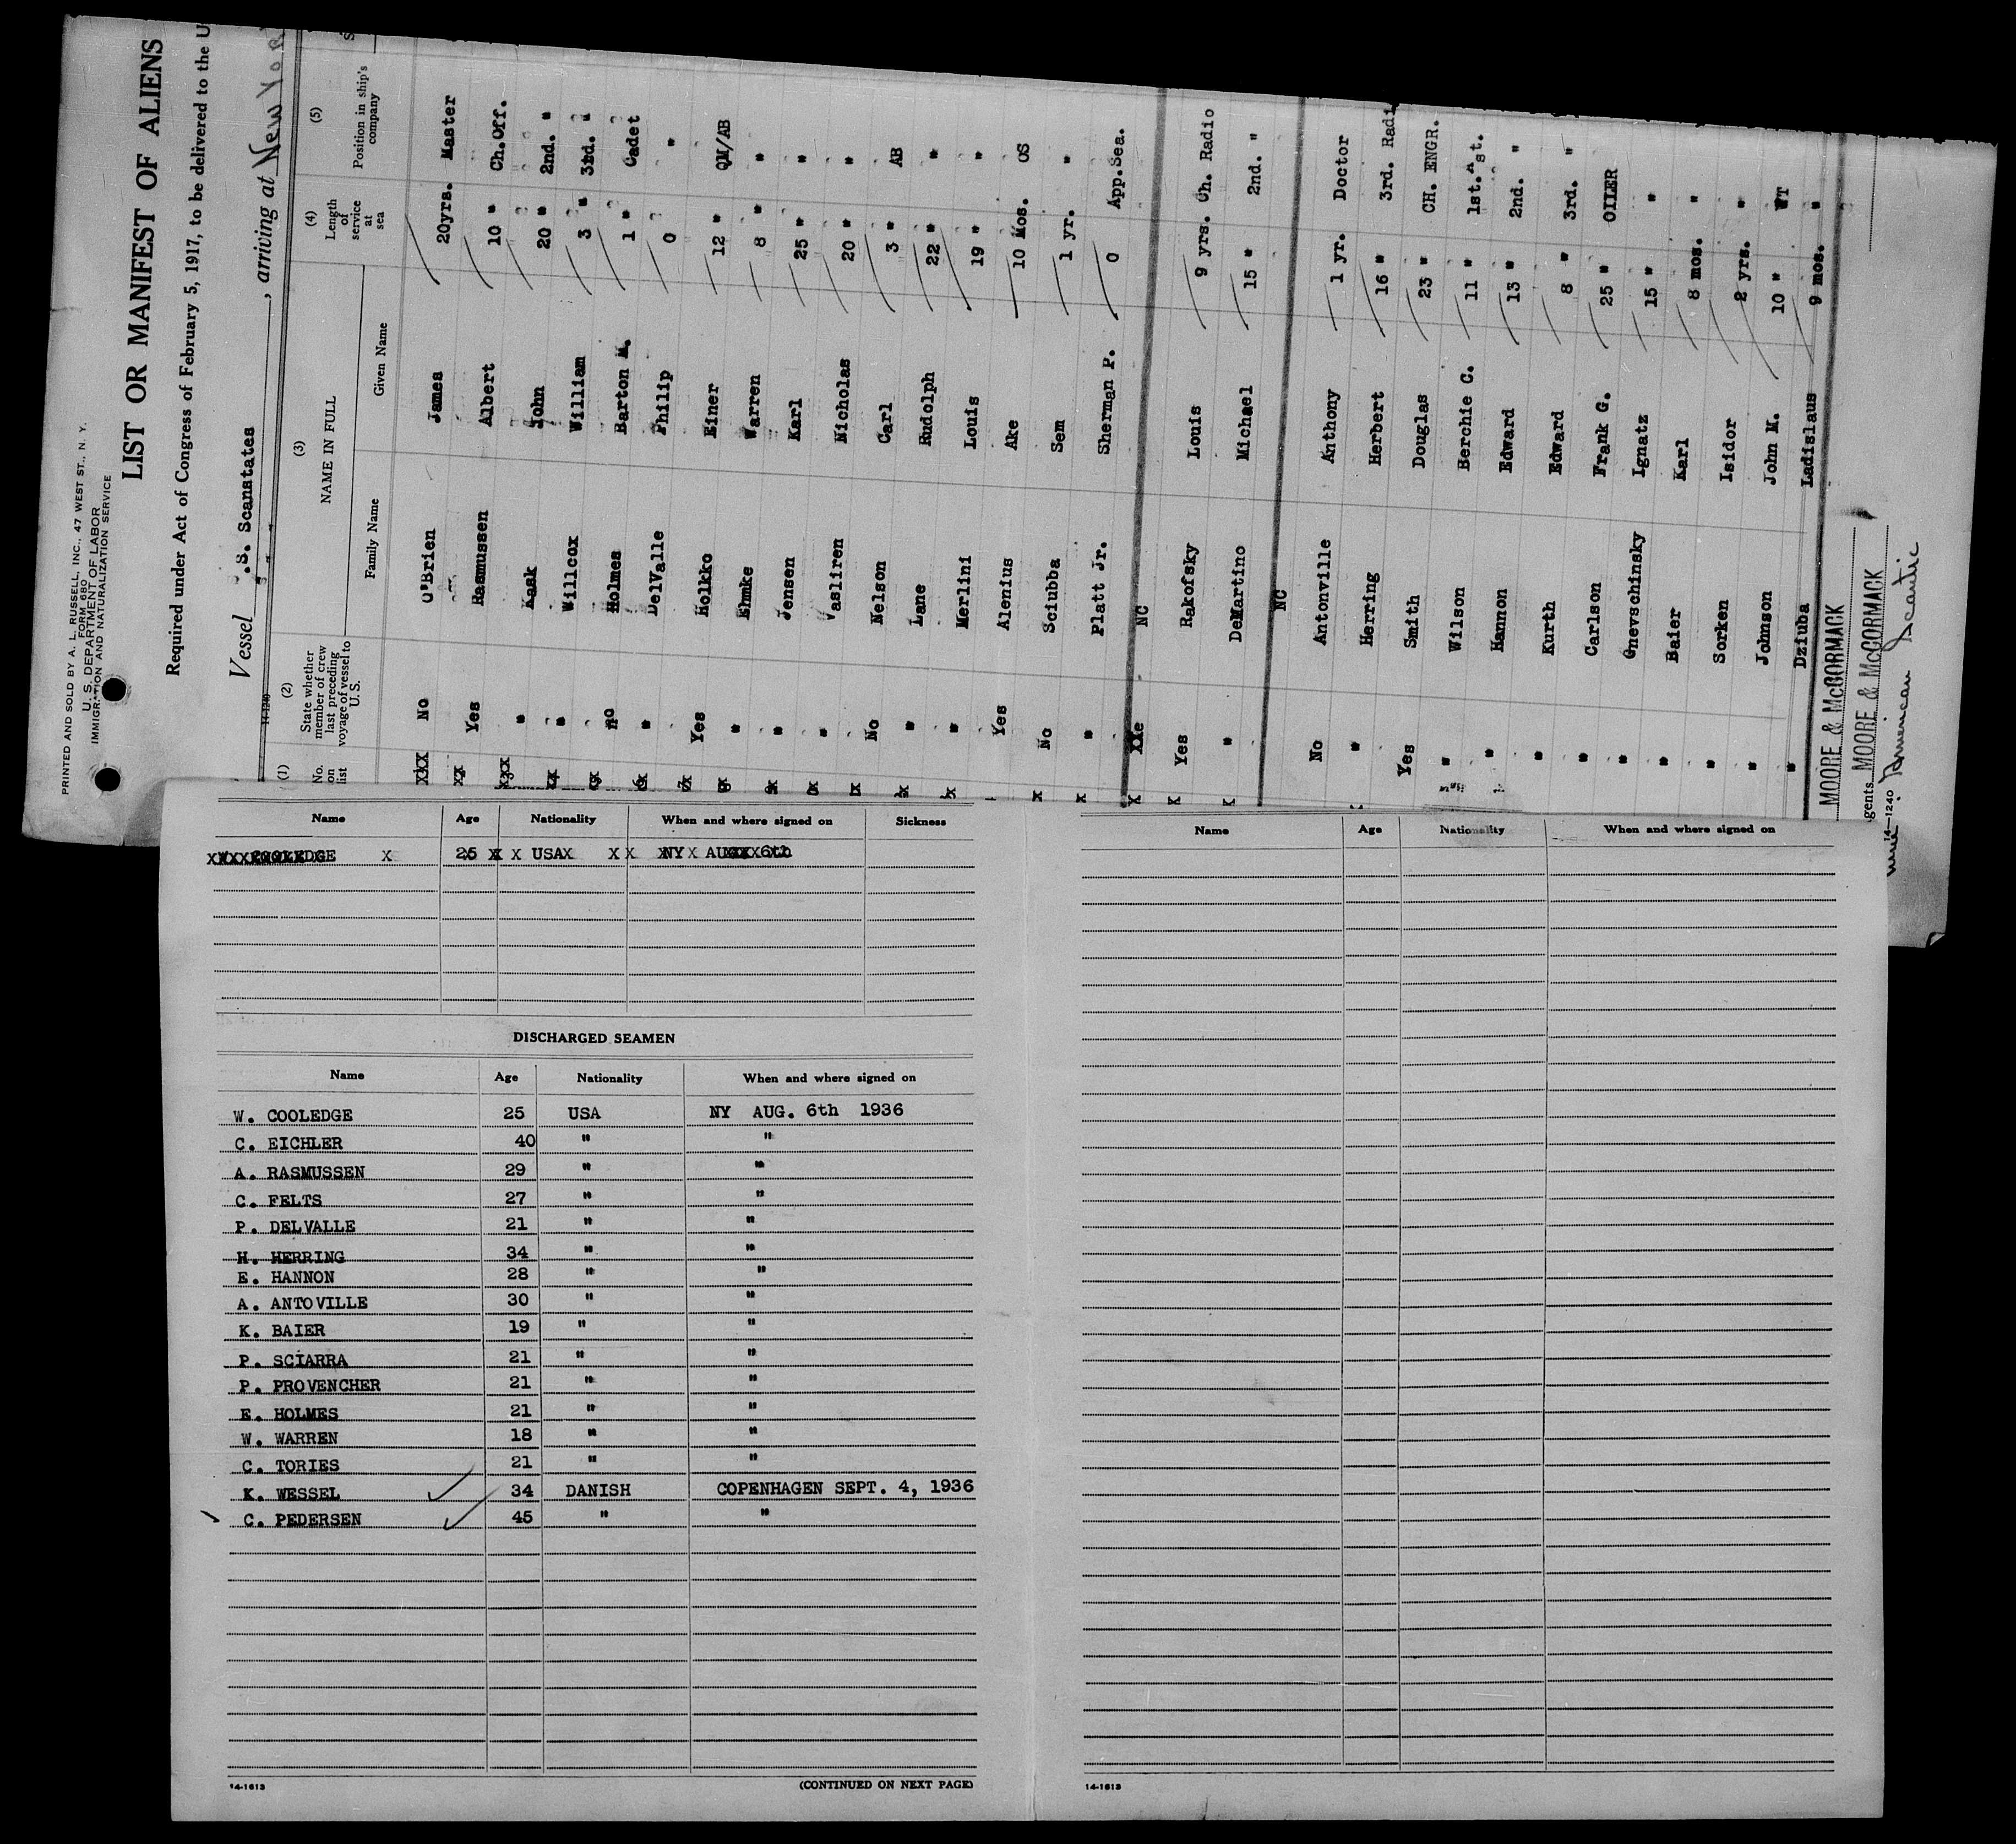 PRINTED AND SOLD BY A. L. RUSSELL, INC., 47 WEST ST., N. Y.
FORM 680
U. S. DEPARTMENT OF LABOR
IMMIGRATION AND NATURALIZATION SERVICE
LIST OR MANIFEST OF ALIENS
Required under Act of Congress of February 5, 1917, to be delivered to the U
Vessel .S. Scanstates, arriving at New York
14-1240
(1) No. on list (2) State whether member of crew last preceding voyage of vessel to U. S. (3) NAME IN FULL Family Name Given Name (4) Length of service at sea (5) Position in ship's company
No O'Brien James 20yrs. Master
Yes Rasmussen Albert 10 " Ch.Off.
" Kaak John 20 " 2nd. "
" Willcox William 3 " 3rd. "
no Holmes Barton M. 1 " Cadet
" DelValle Philip 0 "
Yes Holkko Einer 12 " QM/AB
" Ehmke Warren 8 " "
" Jensen Karl 25 " "
" Vasliren Nicholas 20 " "
No Nelson Carl 3 " AB
" Lane Rudolph 22 " "
" Merlini Louis 19 " "
Yes Alenius Ake 10 Mos. OS
No Sciubba Sem 1 yr. "
" Platt Jr. Sherman P. 0 App.Sea.
NC
Yes Rakofsky Louis 9 yrs. Ch. Radio
" DeMartino Michael 15 " 2nd. "
NC
No Antonville Anthony 1 yr. Doctor
" Herring Herbert 16 " 3rd. Radi
Yes Smith Douglas 23 " CH. ENGR.
" Wilson Berchie C. 11 " 1st. Ast.
" Hannon Edward 13 " 2nd. "
" Kurth Edward 8 " 3rd. "
" Carlson Frank G. 25 " OILER
" Gnevschinsky Ignatz 15 " "
" Baier Karl 8 mos. "
" Sorken Isidor 2 yrs. "
" Johnson John M. 10 " WT
" Dziuba Ladislaus 9 mos. "
MOORE & McCORMACK
gents MOORE & McCORMACK
14-1240
American Scantic
Name Age Nationality When and where signed on Sickness
COOLEDGE 25 USA NY AUG 6th
DISCHARGED SEAMEN
Name Age Nationality When and where signed on
W. COOLEDGE 25 USA NY AUG. 6th 1936
C. EICHLER 40 " "
A. RASMUSSEN 29 " "
C. FELTS 27 " "
P. DELVALLE 21 " "
H. HERRING 34 " "
E. HANNON 28 " "
A. ANTOVILLE 30 " "
K. BAIER 19 " "
P. SCIARRA 21 " "
P. PROVENCHER 21 " "
E. HOLMES 21 " "
W. WARREN 18 " "
C. TORIES 21 " "
K. WESSEL 34 DANISH COPENHAGEN SEPT. 4, 1936
C. PEDERSEN 45 " "
14-1613
(CONTINUED ON NEXT PAGE)
Name Age Nationality When and where signed on
14-1613